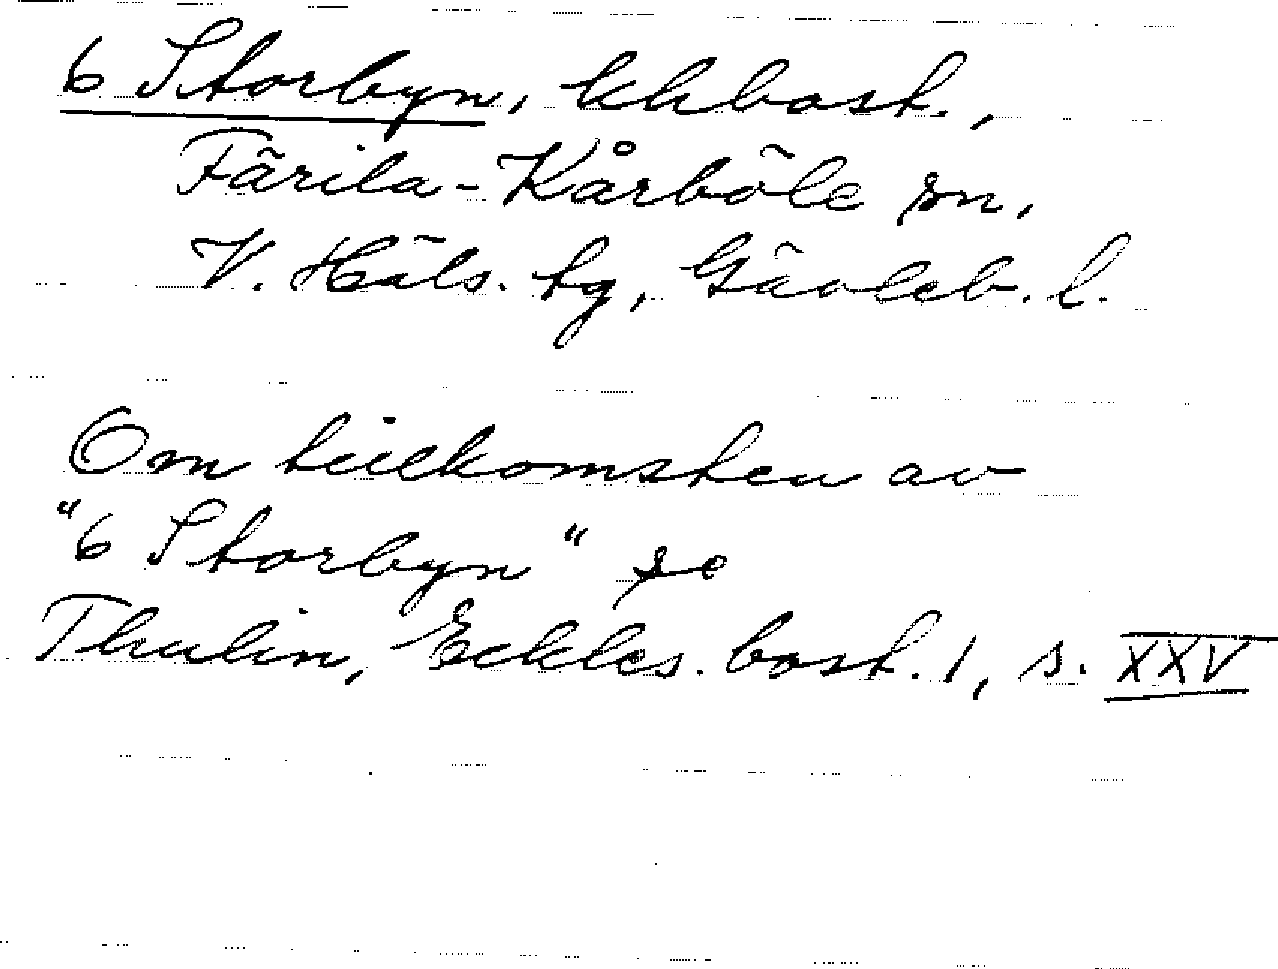 6 Storbyn, khbost.,
Färila-Kårböle sn,
V. Häls. tg, Gävleb. l.
Om tillkomsten av
"6 Storbyn" se
Thulin, Eckles. bost. 1, s. XXV